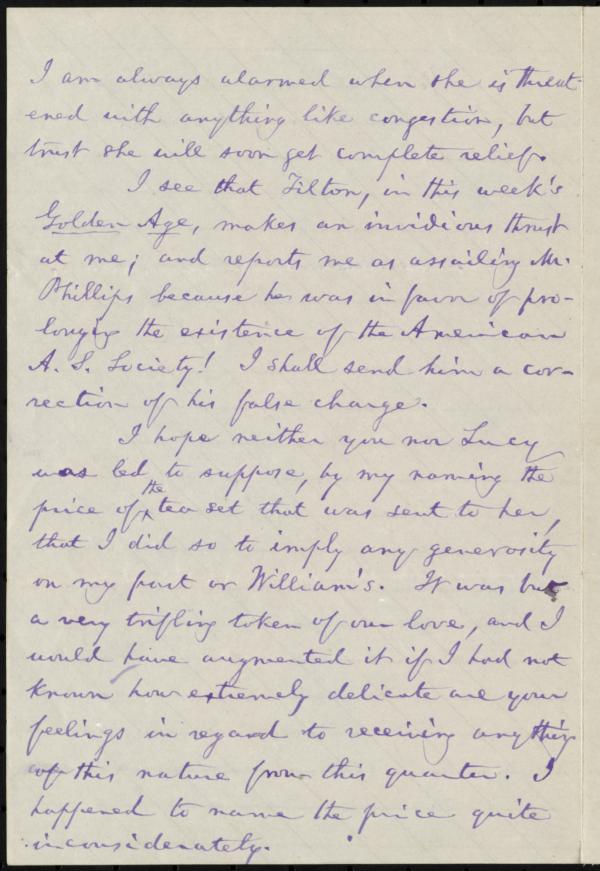 I am always alarmed when she is threat-
ened with anything like congestion, but
trust she will soon get complete relief.
I see that Tilton, in this week's
Golden Age, makes an invidious thrust
at me; and reports me as assailing Mr.
Phillips because he was in favor of pro-
longing the existence of the American
A. S. Society! I shall send him a cor-
rection of his false charge.
I hope neither you nor Lucy
was led to suppose, by my naming the
price of the tea set that was sent to her,
that I did so to imply any generosity
on my part or William's. It was but
a very trifling token of our love, and I
would have augmented it if I had not
known how extremely delicate are your
feelings in regard to receiving anything
of this nature from this quarter. I
happened to name the price quite
inconsiderately.